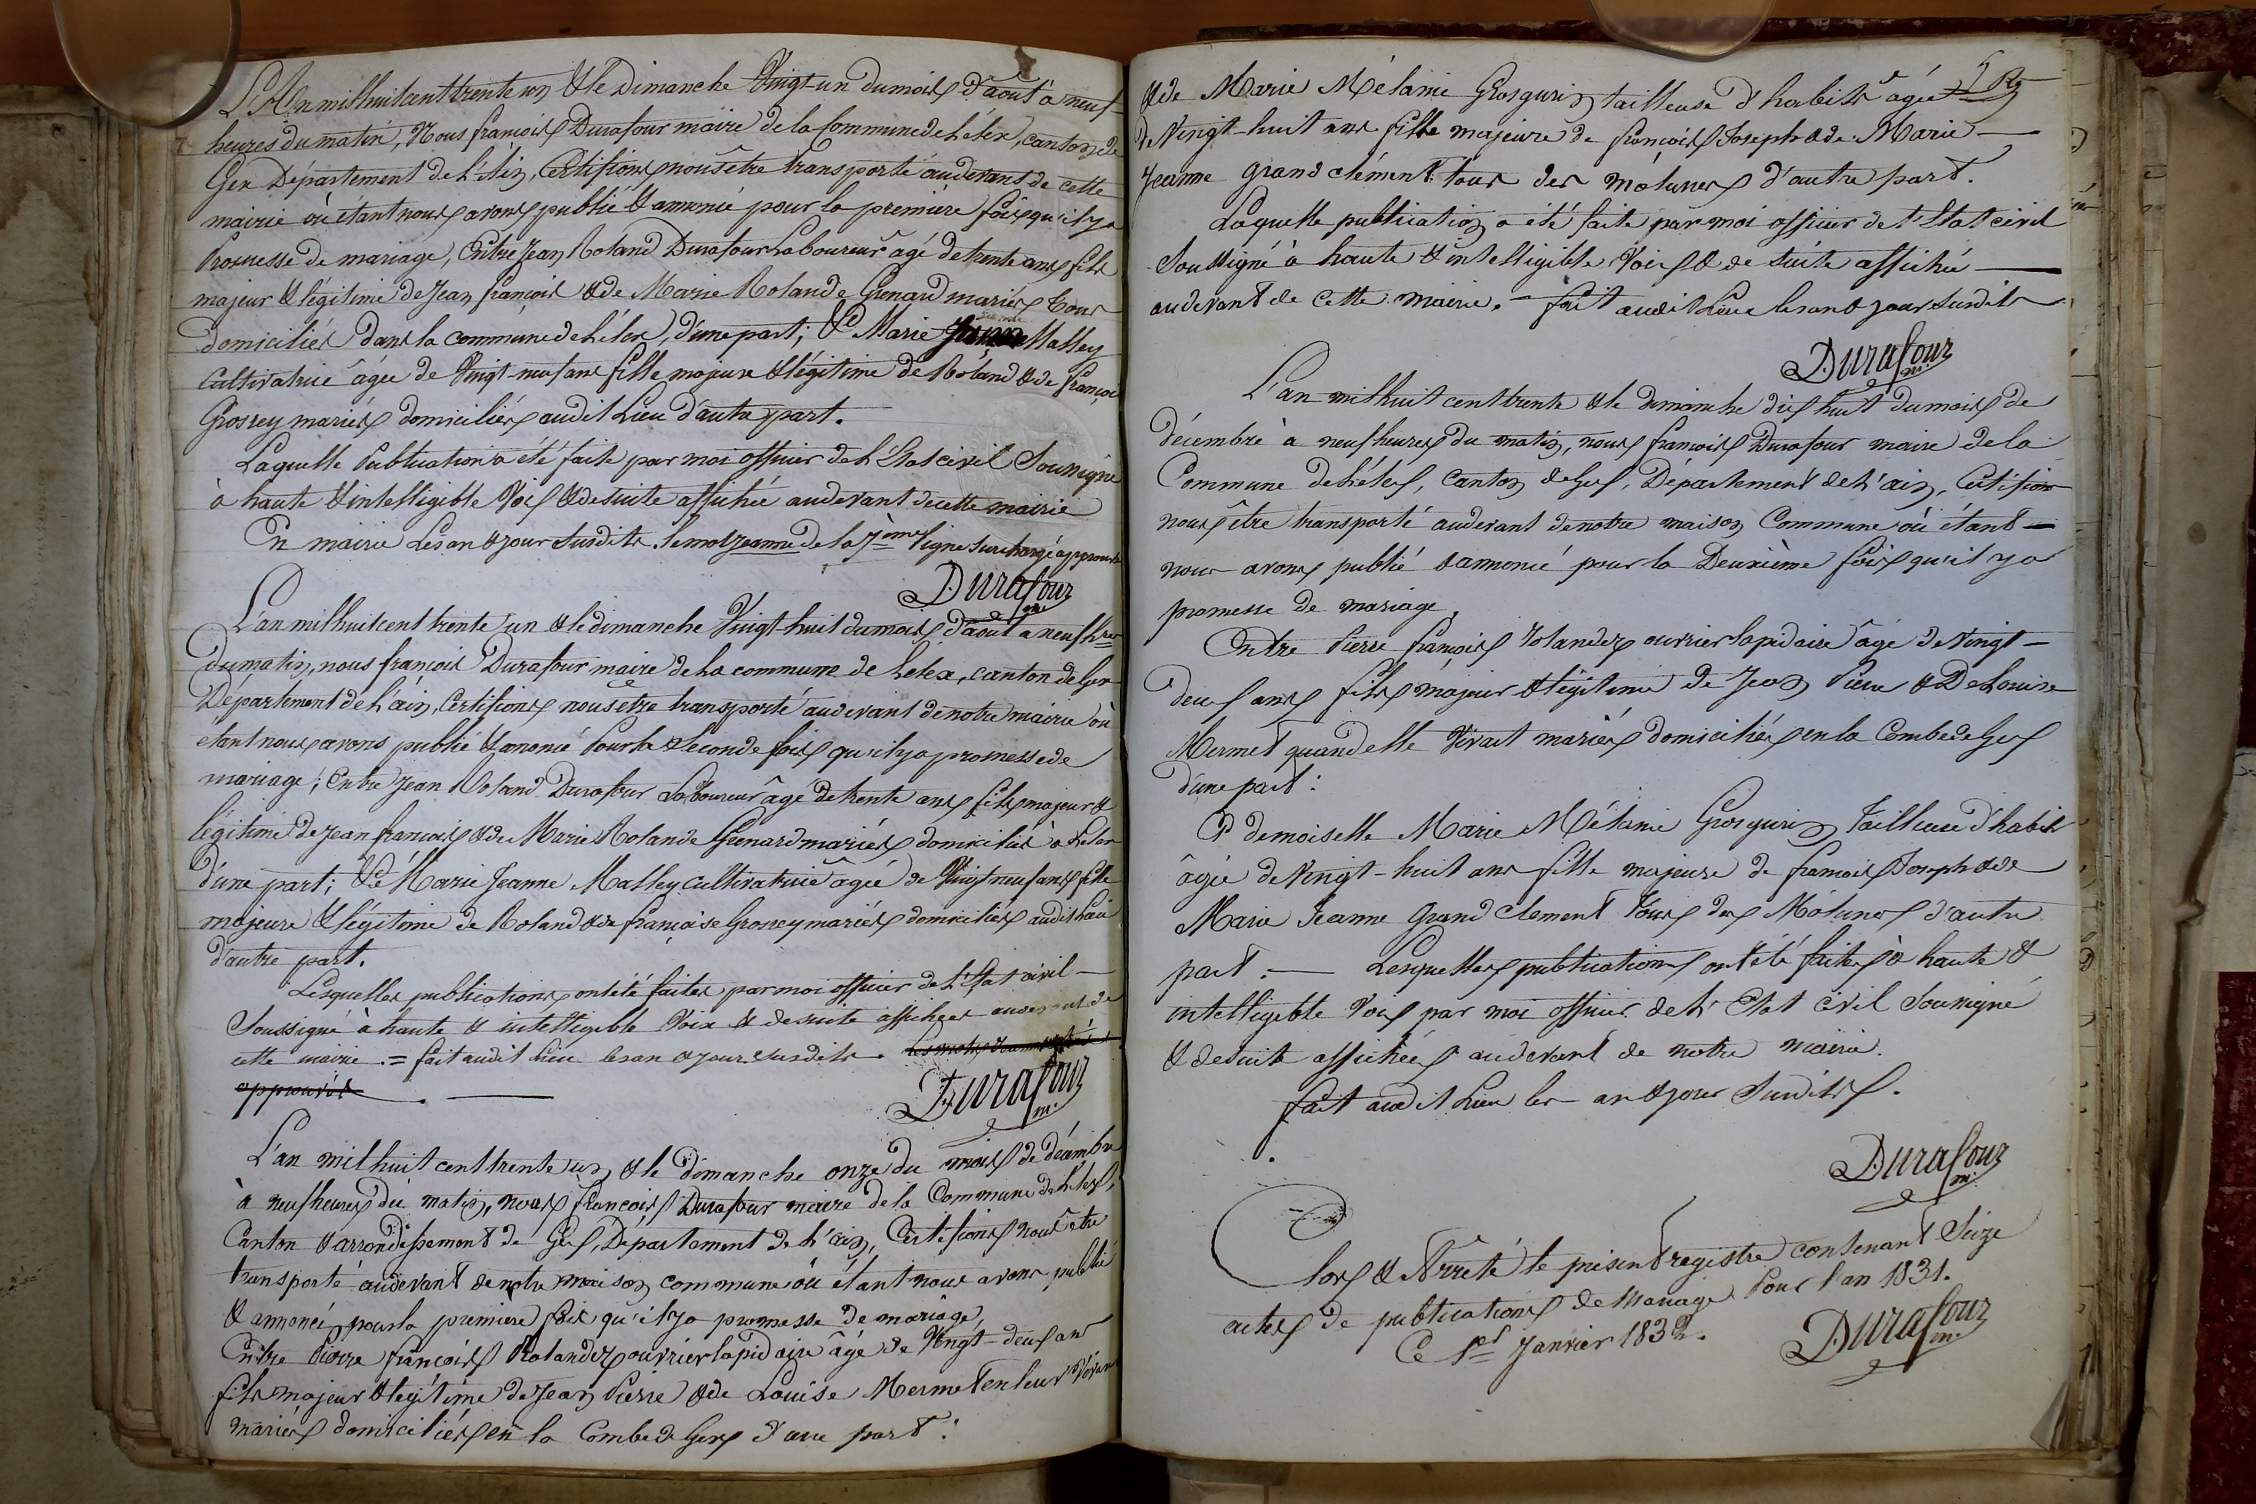 L'An mil huit cent trente un & le Dimanche Vingt-un du mois d'août à neuf
heures du matin, Nous françois Durafour maire de la Commune de Lélex, canton de
Gex Département de l'Ain, Certifions nous être transporté au devant de cette
mairie où étant nous avons publié & annoncé pour la première fois qu'il y a
Promesse de mariage, Entre Jean Roland Durafour Laboureur âgé de trente ans fils
majeur & légitime de Jean françois & de Marie Rolande Grenard mariés Tous
domiciliés dans la commune de Lélex, d'une part; Et Marie Jeanne Malley
Cultivatrice âgée de Vingt-neuf ans fille majeure & légitime de Roland & de françoise
Grosrey mariés domiciliés audit Lieu d'autre part.
Laquelle Publication a été faite par moi officier de L'Etat civil Soussigné
à haute & intelligible Voix & de suite affichée au devant de cette mairie
En mairie Les an & jour susdits. le mot Jeanne de la 7ème ligne surchargé approuvé
Durafour
m.
L'an mil huit cent trente un & le dimanche Vingt-huit du mois d'août à neuf hres
du matin, nous françois Durafour maire de la commune de Lélex, canton de Gex
Département de l'ain, Certifions nous être transporté au devant de notre mairie où
étant nous avons publié & anoncé Pour la seconde fois qu'il y a promesse de
mariage; Entre Jean Roland Durafour Laboureur âgé de trente ans fils majeur &
légitime de Jean françois & de Marie Rolande Grenard mariés domiciliés à Lélex
d'une part; Et Marie Jeanne Malley cultivatrice âgée de Vingt neuf ans fille
majeure & légitime de Roland & de françoise Grosrey mariés domiciliés audit Lieu
d'autre part.
Lesquelles publications ont été faites par moi officier de L'Etat civil —
Soussigné à haute & intelligible Voix & de suite affichées au devant de
cette mairie. = fait audit Lieu les an & jour susdits. Les mots Jeanne
approuvés. —
Durafour
m.
L'an mil huit cent trente un & le dimanche onze du mois de décembre
à neuf heures du matin, nous françois Durafour maire de la Commune de Lélex,
Canton & arrondissement de Gex, Département de l'ain, Certifions nous être
transporté au devant de notre maison commune où étant nous avons publié
& annoncé pour la première fois qu'il y a promesse de mariage,
Entre Pierre françois Rolandez ouvrier lapidaire âgé de Vingt-deux ans
fils majeur & légitime de Jean Pierre & de Louise Mermet en leur Vivant
mariés domiciliés en la Combe de Gex d'une part:
5 R
& de Marie Mélanie Grosgurin tailleuse d'habits âgée
de Vingt-huit ans fille majeure de françois Joseph & de Marie —
Jeanne grand clément tous des molunes d'autre part.
Laquelle publication a été faite par moi officier de l'Etat civil
Soussigné à haute & intelligible Voix & de suite affichée —
au devant de cette mairie. — fait audit Lieu les an & jour susdits
Durafour
m.
L'an mil huit cent trente & le dimanche dix huit du mois de
décembre à neuf heures du matin, nous françois Durafour maire de la
Commune de Lélex, Canton de Gex, Département de l'ain, Certifions
nous être transporté au devant de notre maison Commune où étant —
nous avons publié & annoncé pour la Deuxième fois qu'il y a
promesse de mariage,
Entre Pierre françois Rolandez ouvrier lapidaire âgé de Vingt —
deux ans fils majeur & légitime de Jean Pierre & De Louise
Mermet quand elle Vivait mariés domiciliés en la Combe de Gex
d'une part:
Et demoiselle Marie Mélanie Grosgurin Tailleuse d'habits
âgée de Vingt-huit ans fille majeure de françois Joseph & de
Marie Jeanne Grand Clement Tous des Molunes d'autre
part. — Lesquelles publications ont été faites à haute &
intelligible Voix par moi officier de l'Etat civil Soussigné
& de suite affichées au devant de notre mairie.
fait audit Lieu les an & jour Susdits.
Durafour
m.
Clos & Arrêté le présent registre contenant Seize
actes de publications de Mariage Pour l'an 1831.
Ce 1er Janvier 1832.
Durafour
m.